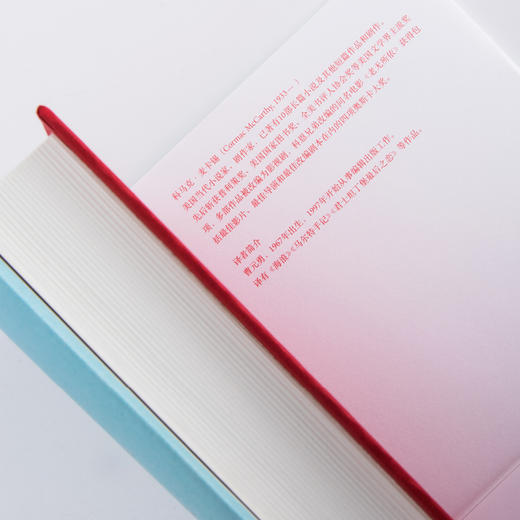 科马克·麦卡锡（Cormac McCarthy, 1933— ）
美国当代小说家、剧作家，已著有10部长篇小说及其他短篇作品和剧作。
先后斩获普利策奖、美国国家图书奖、全美书评人协会奖等美国文学界主流奖
项，多部作品被改编为影视剧，科恩兄弟改编的同名电影《老无所依》获得包
括最佳影片、最佳导演和最佳改编剧本在内的四项奥斯卡大奖。
译者简介
曹元勇，1967年出生，1997年开始从事编辑出版工作。
译有《海浪》《马尔特手记》《君士坦丁堡最后之恋》等作品。